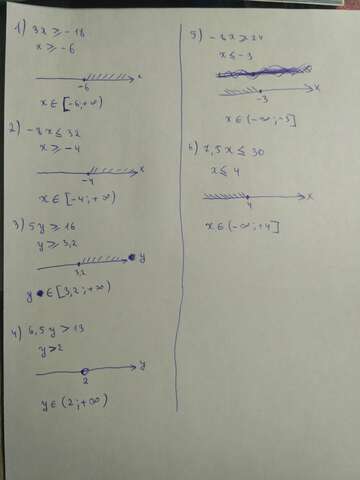 1) 3x ≥ -18
x ≥ -6
-6 x
x ∈ [-6; +∞)
2) -8x ≤ 32
x ≥ -4
-4 x
x ∈ [-4; +∞)
3) 5y ≥ 16
y ≥ 3,2
3,2 y
y ∈ [3,2; +∞)
4) 6,5y > 13
y > 2
2 y
y ∈ (2; +∞)
5) -8x ≥ 24
x ≤ -3
-3 x
x ∈ (-∞; -3]
6) 7,5x ≤ 30
x ≤ 4
4 x
x ∈ (-∞; +4]